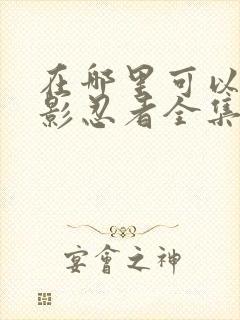 在哪里可以
影忍者全集
宴會之神